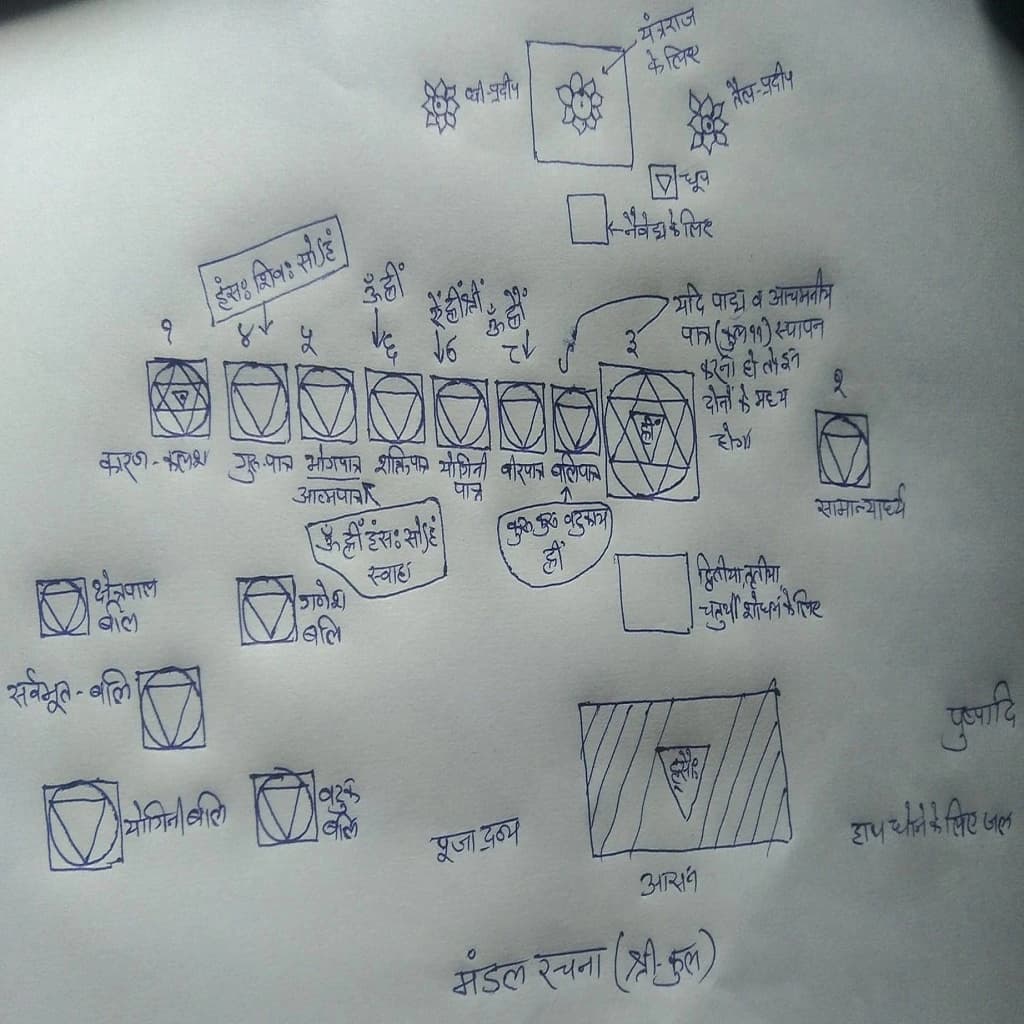 यंत्रराज
के लिए
घी-प्रदीप
तैल-प्रदीप
धूप
नैवेद्य के लिए
हंसः शिवः सोऽहं
ॐ ह्रीं
ऐं ह्रीं श्रीं
यदि पाद्य व आचमनीय
पात्र (कुल ११) स्थापन
करना हो तो इन
दोनों के मध्य
होगा
१
४
५
६
३
२
ह्रीं
कारण-कलश
गुरु-पात्र
भोगपात्र
आत्मपात्र
शक्तिपात्र
योगिनी
पात्र
वीरपात्र
बलिपात्र
सामान्यार्घ्य
ॐ ह्रीं हंसः सोऽहं
स्वाहा
ह्रीं
द्वितीया, तृतीया,
चतुर्थी शोधन के लिए
क्षेत्रपाल
बलि
गणेश
बलि
सर्वभूत-बलि
योगिनी बलि
वटुक
बलि
पुष्पादि
पूजा द्रव्य
हाथ धोने के लिए जल
आसन
मंडल रचना (श्री-कुल)